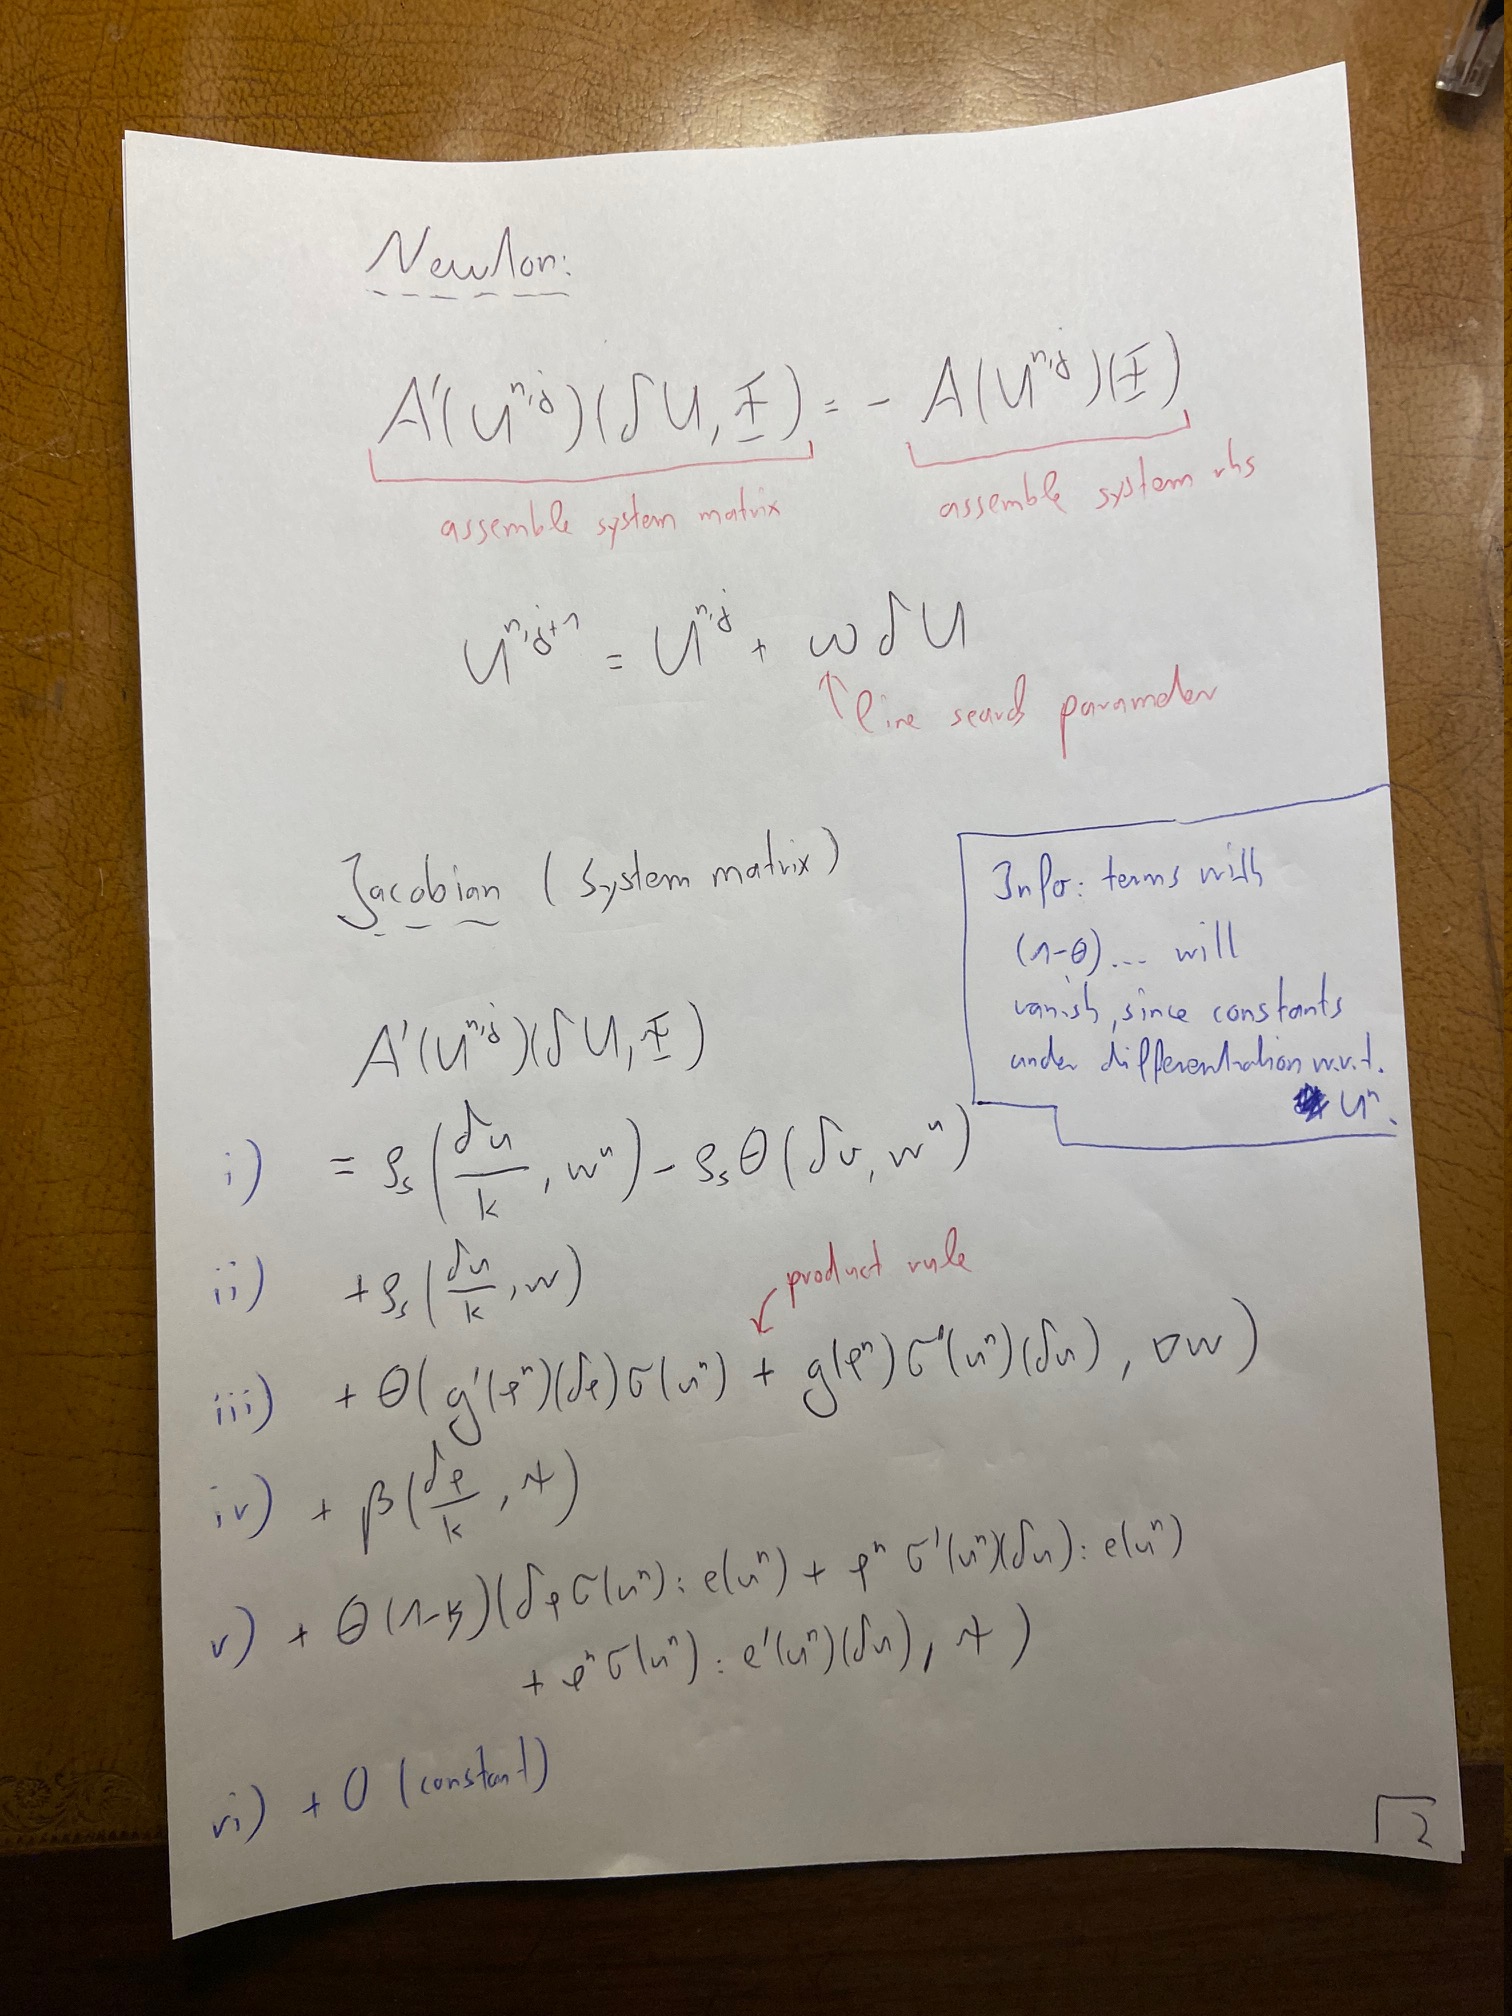 Newton:
A'(U^{n,j})(δU, Ψ) = - A(U^{n,j})(Ψ)
assemble system matrix
assemble system rhs
U^{n,j+1} = U^{n,j} + ω δU
↑ line search parameter
Jacobian (System matrix)
Info: terms with
(1-θ)... will
vanish, since constants
under differentiation w.r.t.
U^n.
A'(U^{n,j})(δU, Ψ)
i) = ρ_s (δu/k, w^n) - ρ_s θ (δv, w^n)
ii) + ρ_s (δu/k, w)
product rule
iii) + θ( g'(φ^n)(δφ) σ(u^n) + g(φ^n) σ'(u^n)(δu), ∇w )
iv) + β (δφ/k, ψ)
v) + θ (1-κ) (δφ σ(u^n) : e(u^n) + φ^n σ'(u^n)(δu) : e(u^n)
+ φ^n σ(u^n) : e'(u^n)(δu), ψ )
vi) + 0 (constant)
2